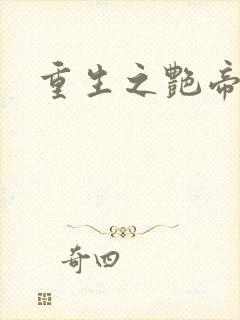 重生之艷帝
奇四